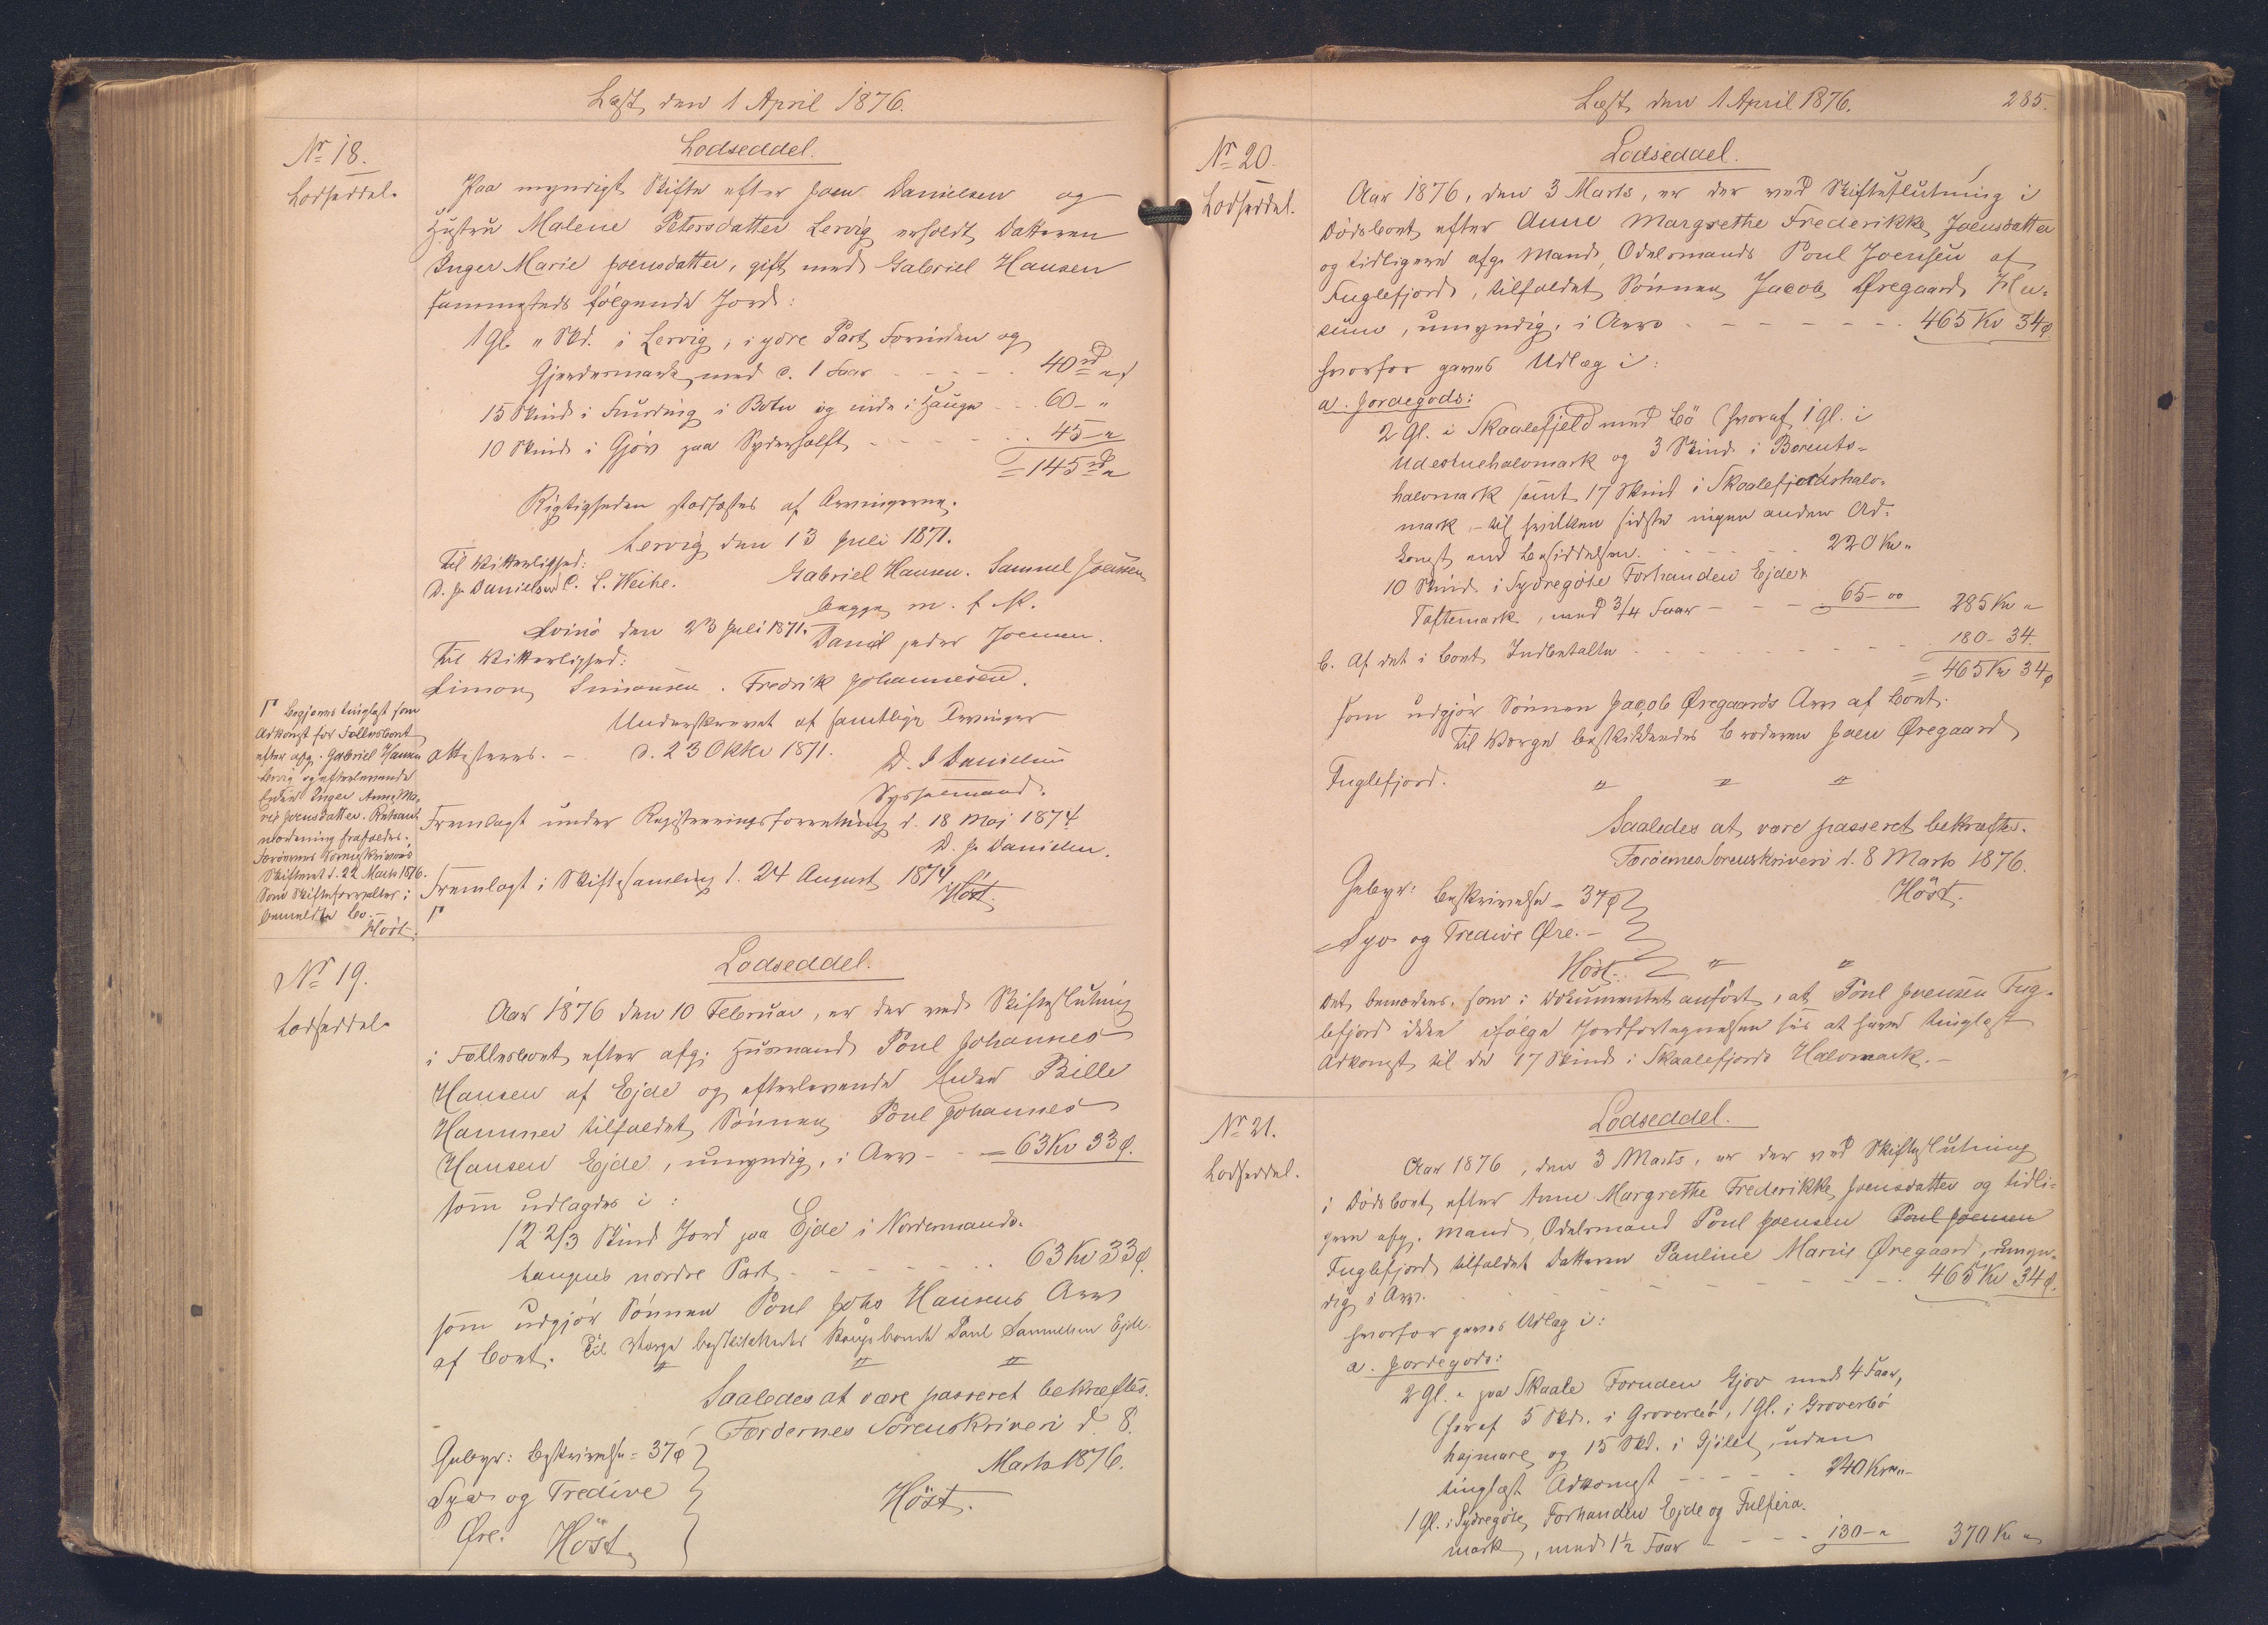 Læst den 1 April 1876.
Nr 18.
Lodseddel.
Lodseddel.
Paa myndigt Skifte efter Joen Danielsen og
Hustru Malene Petersdatter Lervig erholdt Datteren
Inger Marie Joensdatter, gift med Gabriel Hansen
sammesteds følgende Jord:
1 Gl. " Skd. i Lervig, i ydre Part Forinden og
Gjerdesmark med c. 1 Faar - - - - 40 rd "
15 Skind i Funding i Botn og inde i Hauge - - 60 - "
10 Skind i Gjöv paa Syderhalft - - - - - 45 - "
= 145 rd "
Rigtigheden stadfæstes af Arvingerne.
Lervig den 13 Juli 1871.
Til Vitterlighed:
D. J. Danielsen C. L. Weihe.
Gabriel Hansen. Samuel Joensen
begge m. f. P.
Svinö den 23 Juli 1871.
Daniel Joensen.
Til Vitterlighed:
Simon Simonsen. Fredrik Johannesen.
Underskrevet af samtlige Arvinger
attesteres. - d. 23 Oktbr 1871.
D. J. Danielsen
Sysselmand.
Fremlagt under Registreringsforretning d. 18 Maj 1874
D. J. Danielsen.
Fremlagt i Skiftesamling d. 24 August 1874
Höst.
Γ
Γ Begjæres tinglæst som
Adkomst for Fællesboet
efter afg. Gabriel Hansen
Lervig og efterlevende
Enke Inger Anne Ma-
rie Joensdatter. Retsan-
mærkning frafaldes.
Færöernes Sorenskriveris
Skifteret d. 22 Marts 1876.
Som Skifteforvalter i
bemeldte Bo. -
Höst.
Nr 19.
Lodseddel.
Lodseddel.
Aar 1876 den 10 Februar, er der ved Skifteslutning
i Fællesboet efter afg. Husmand Poul Johannes
Hansen af Ejde og efterlevende Enke Bille
Hammer tilfaldet Sönnen Poul Johannes
Hansen Ejde, umyndig, i Arv - - = 63 Kr 33 ø.
som udlagdes i:
12 2/3 Skind Jord paa Ejde i Nordermands-
haugens nordre Part - - - - - - 63 Kr 33 ø.
som udgjör Sönnen Poul Johs Hansens Arv
af Boet. Til Værge beskikkedes Kongsbonde Poul Samuelsen Ejde.
" " "
Saaledes at være passeret bekræftes.
Færöernes Sorenskriveri d. 8.
Marts 1876.
Höst.
Gebyr: Beskrivelse = 37 ø
Syv og Tredive
Øre.
Höst
Læst den 1 April 1876.
285.
Nr 20.
Lodseddel.
Lodseddel.
Aar 1876, den 3 Marts, er der ved Skifteslutning i
Dödsboet efter Anne Margrethe Frederikke Joensdatter
og tidligere afg. Mand, Odelsmand Poul Joensen af
Fuglefjord, tilfaldet Sönnen Jacob Øregaard Hu-
sum, umyndig, i Arv - - - - - - - 465 Kr 34 ø.
hvorfor gaves Udlæg i:
a. Jordegods:
2 Gl. i Skaalefjeld med Bö (hvoraf 1 Gl. i
Udestuehalvmark og 3 Skind i Berents-
halvmark samt 17 Skind i Skaalefjordshalv-
mark, - til hvilken sidste ingen anden Ad-
komst end Besiddelsen. - - - - - 220 Kr "
10 Skind i Sydregöte Forhanden Ejde &
Toftemark, med 3/4 Faar - - - 65 - 00 285 Kr "
b. Af det i Boet Indbetalte - - - - - - - - - 180 - 34.
= 465 Kr 34 ø
som udgjör Sönnen Jacob Øregaards Arv af Boet.
Til Værge beskikkedes Broderen Joen Øregaard
Fuglefjord. " " "
Saaledes at være passeret bekræftes.
Færöernes Sorenskriveri d. 8 Marts 1876.
Höst.
Gebyr: Beskrivelse - 37 ø
Syv og Tredive Øre. -
Höst. " "
Det bemærkes, som i Dokumentet anfört, at Poul Joensen Fug-
lefjord ikke ifölge Jordfortegnelsen ses at have tinglæst
Adkomst til de 17 Skind i Skaalefjords Halvmark. -
Nr 21.
Lodseddel.
Lodseddel.
Aar 1876, den 3 Marts, er der ved Skifteslutning
i Dödsboet efter Anne Margrethe Frederikke Joensdatter og tidli-
gere afg. Mand, Odelsmand Poul Joensen Poul Joensen
Fuglefjord tilfaldet Datteren Pauline Marie Øregaard, umyn-
dig i Arv. - - - - - - - - 465 Kr 34 ø.
hvorfor gaves Udlæg i:
a. Jordegods:
2 Gl. " paa Skaale Foruden Gjov med 4 Faar,
(heraf 5 Skd. i Groverbö, 1 Gl. i Groverbö
hajmark og 15 Skd. i Gjilet, uden
tinglæst Adkomst - - - - - 240 Kr "
1 Gl. i Sydregöte Forhanden Ejde og
mark, med 1 1/2 Faar - - - - 130 - " 370 Kr "